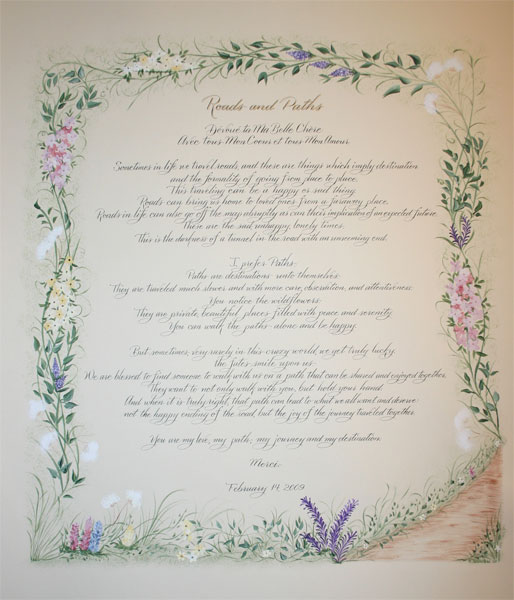 Roads and Paths
Dévoué to Ma Belle Chère
Avec tous Mon Coeur et tous Mon Amour
Sometimes in life we travel roads, and these are things which imply destination
and the formality of going from place to place.
This traveling can be a happy or sad thing.
Roads can bring us home to loved ones from a faraway place.
Roads in life can also go off the map abruptly as can their implication of unexpected future.
These are the sad unhappy, lonely times.
This is the darkness of a tunnel in the road with an unseeming end.
I prefer Paths.
Paths are destinations unto themselves.
They are traveled much slower and with more care, observation, and attentiveness.
You notice the wildflowers.
They are private, beautiful places filled with peace and serenity.
You can walk the paths alone and be happy.
But sometimes, very rarely in this crazy world, we get truly lucky.
the fates smile upon us.
We are blessed to find someone to walk with us on a path that can be shared and enjoyed together.
They want to not only walk with you, but hold your hand.
And when it is truly right, that path can lead to what we all want and deserve:
not the happy ending of the road, but the joy of the journey traveled together.
You are my love, my path, my journey and my destination.
Merci.
February 14, 2009